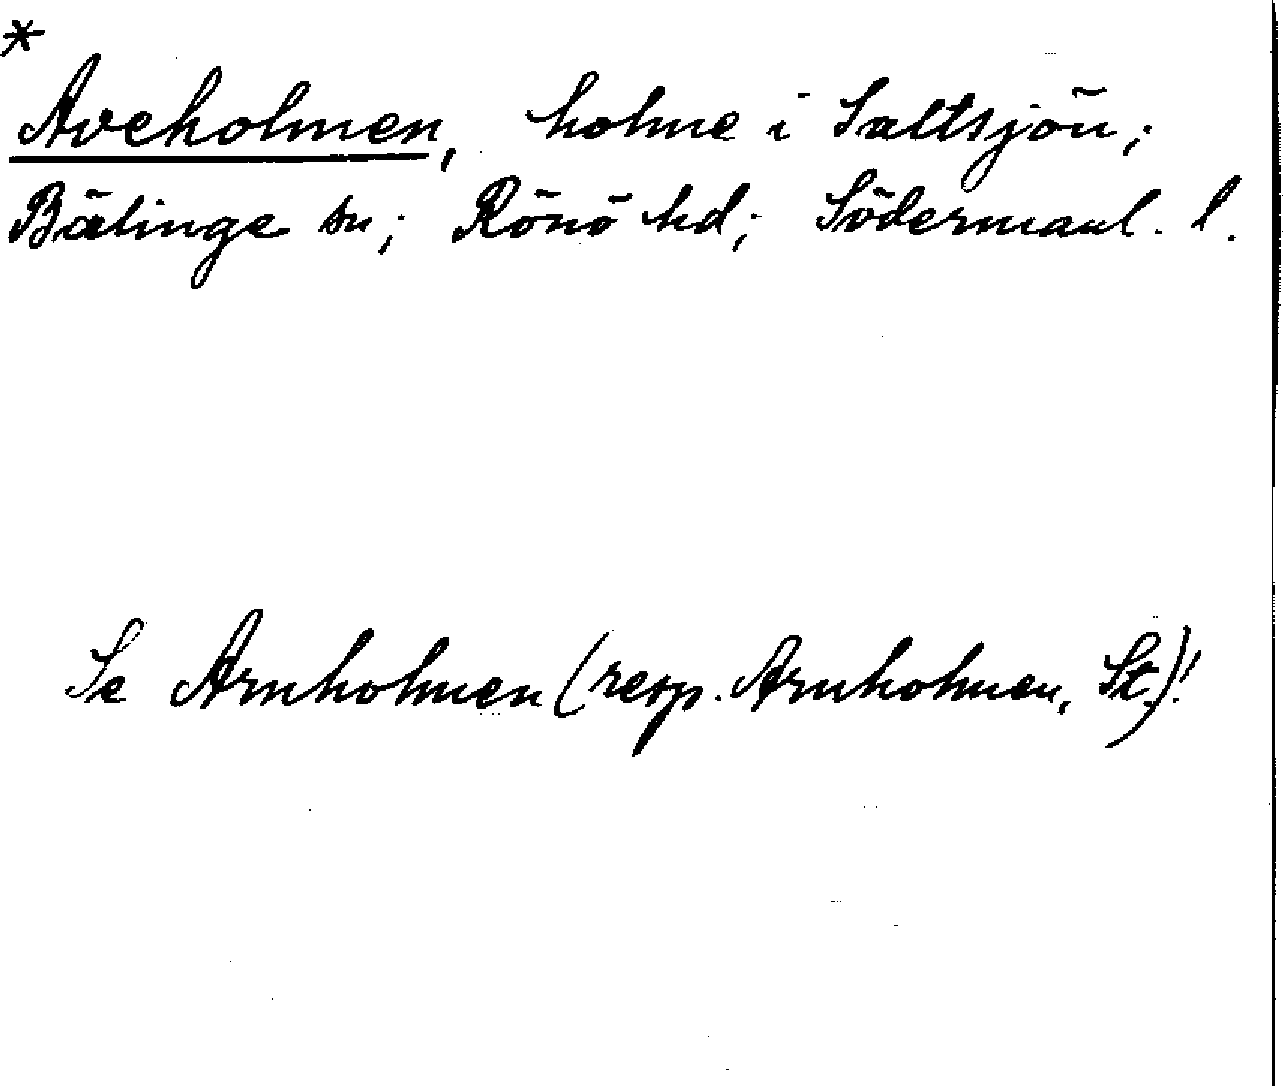 *
Aveholmen, holme i Saltsjön;
Bälinge sn; Rönö hd; Södermanl. l.
Se Arnholmen (resp. Arnholmen, St.)!